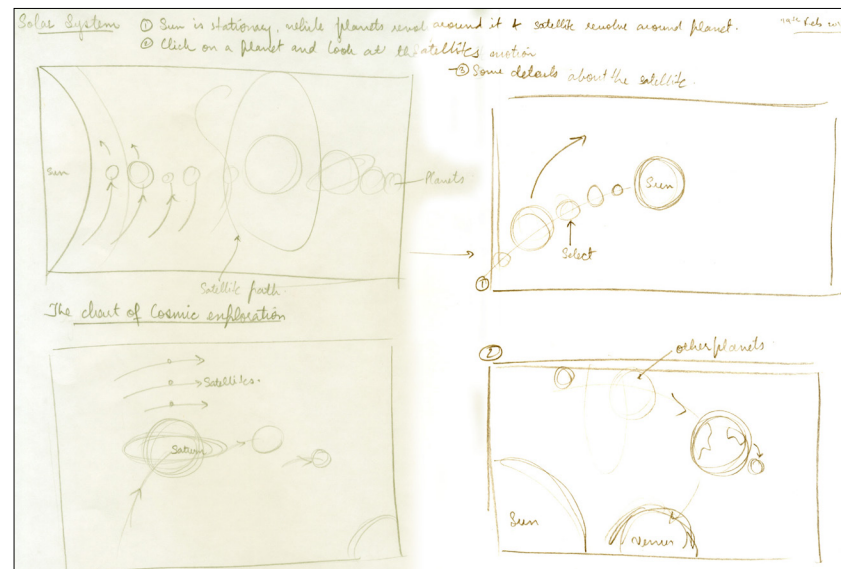 Solar System
① Sun is stationary, while planets revol around it & satellite revolve around planet.
② Click on a planet and look at the satellites motion
③ Some details about the satellite.
Sun
Planets
Satellite path
Sun
Select
①
The chart of Cosmic exploration
Satellites.
Saturn
②
other planets
Sun
Venus